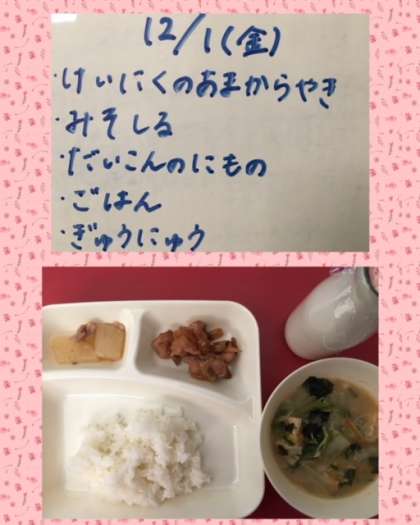 12/1(金)
・けいにくのあまからやき
・みそしる
・だいこんのにもの
・ごはん
・ぎゅうにゅう